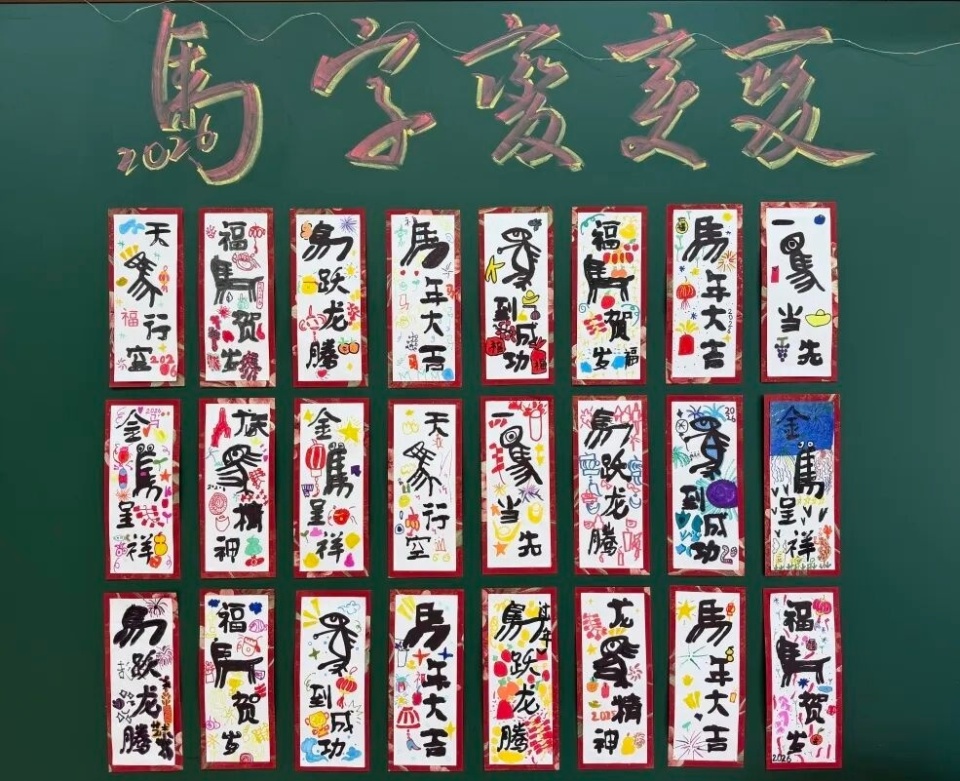 馬字变变变
2026
天馬行空
福
2026
福馬贺岁
馬跃龙腾
馬年大吉
馬到成功
福
福
福馬贺岁
福
馬年大吉
福
2026
一馬当先
金馬呈祥
2026
龙馬精神
金馬呈祥
天馬行空
一馬当先
馬跃龙腾
馬到成功
2026
金馬呈祥
馬跃龙腾
福馬贺岁
馬到成功
馬年大吉
馬跃龙腾
龙馬精神
馬年大吉
福馬贺岁
2026